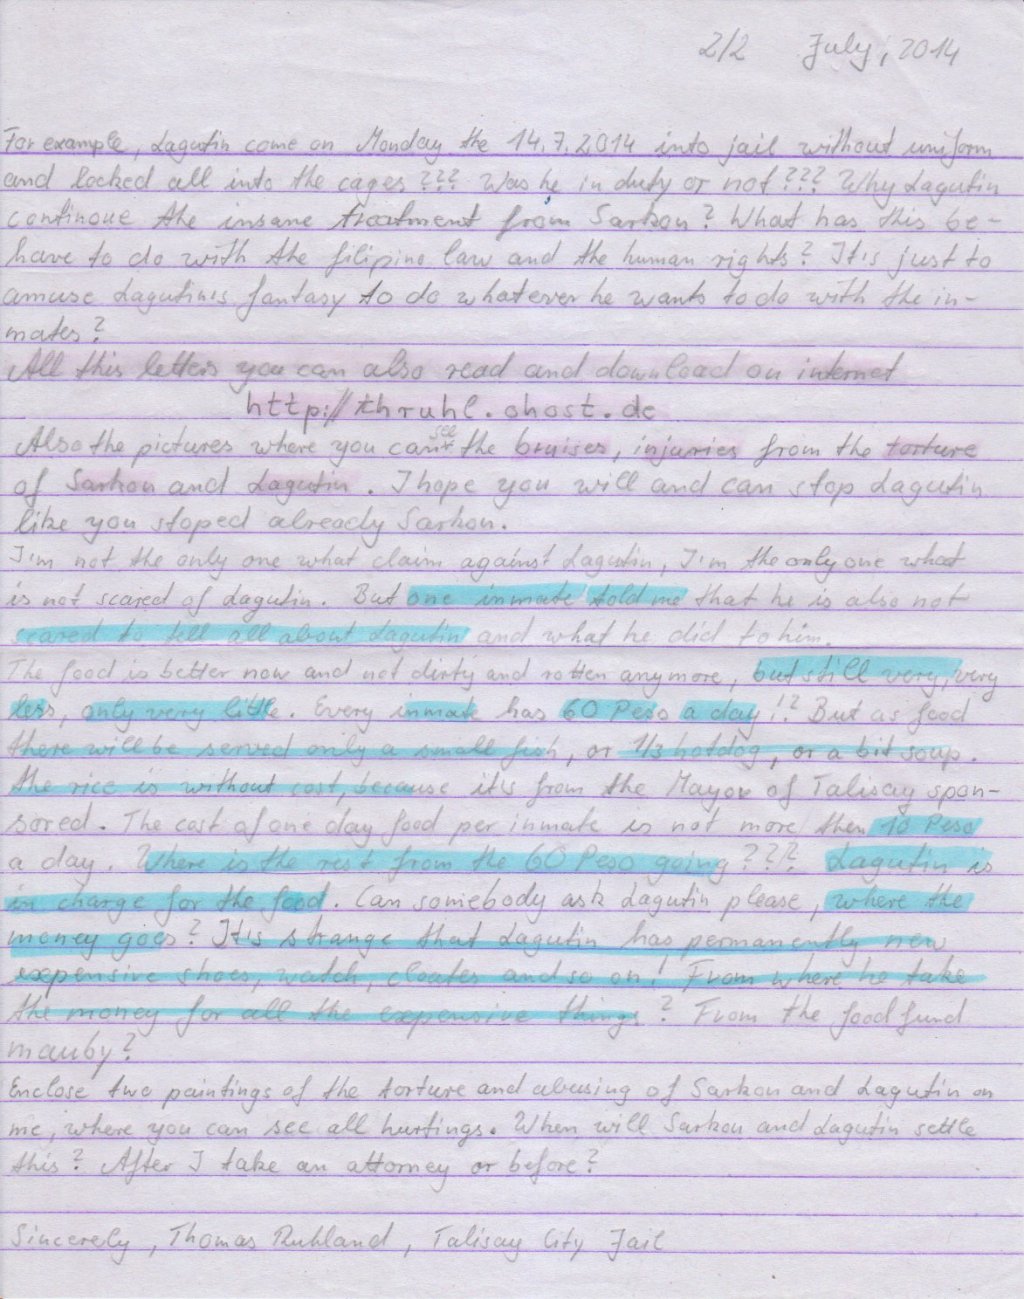 2/2 July, 2014
For example, Lagutin come on Monday the 14.7.2014 into jail without uniform
and locked all into the cages??? Was he in duty or not??? Why Lagutin
continoue the insane treatment from Sarkon? What has this be-
have to do with the filipino law and the human rights? It's just to
amuse Lagutin's fantasy to do whatever he wants to do with the in-
mates?
All this letters you can also read and download on internet
http://thruhl.ohost.de
Also the pictures where you can see the bruises, injuries from the torture
of Sarkon and Lagutin. I hope you will and can stop Lagutin
like you stoped already Sarkon.
I'm not the only one what claim against Lagutin, I'm the only one what
is not scared of Lagutin. But one inmate told me that he is also not
scared to tell all about Lagutin and what he did to him.
The food is better now and not dirty and rotten anymore, but still very, very
less, only very little. Every inmate has 60 Peso a day!? But as food
there will be served only a small fish, or 1/3 hotdog, or a bit soup.
the rice is without cost, because it's from the Mayor of Talisay spon-
sored. The cost of one day food per inmate is not more then 10 Peso
a day. Where is the rest from the 60 Peso going??? Lagutin is
in charge for the food. Can somebody ask Lagutin please, where the
money goes? It's strange that Lagutin has permanently new
expensive shoes, watch, cloates and so on! From where he take
the money for all the expensive things? From the food fund
mauby?
Enclose two paintings of the torture and abusing of Sarkon and Lagutin on
me, where you can see all hurtings. When will Sarkon and Lagutin settle
this? After I take an attorney or before?
Sincerely, Thomas Ruhland, Talisay City Jail